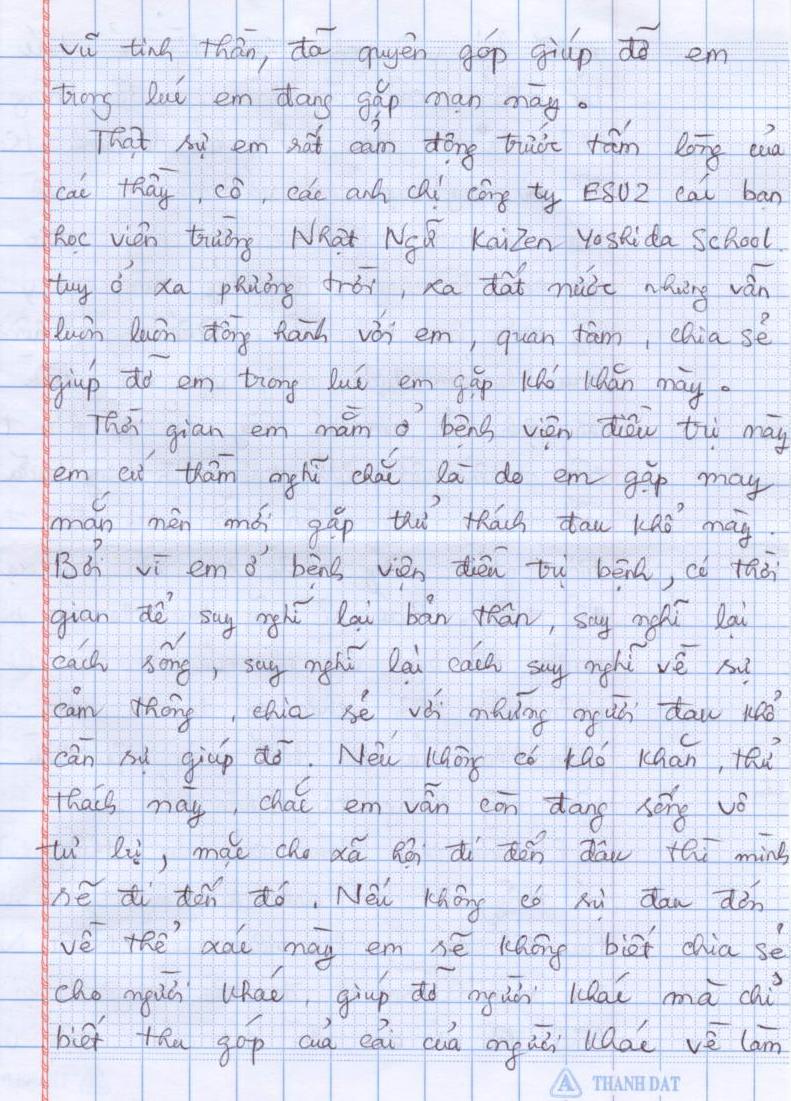 vũ tinh thần, đã quyên góp giúp đỡ em
trong lúc em đang gặp nạn này.
Thật sự em rất cảm động trước tấm lòng của
các thầy, cô, các anh chị công ty ESU2 các bạn
học viên trường Nhật Ngữ KaiZen Yoshida School.
tuy ở xa phương trời, xa đất nước nhưng vẫn
luôn luôn đồng hành với em, quan tâm, chia sẻ
giúp đỡ em trong lúc em gặp khó khăn này.
Thời gian em nằm ở bệnh viện điều trị này
em cứ thầm nghĩ chắc là do em gặp may
mắn nên mới gặp thử thách đau khổ này.
Bởi vì em ở bệnh viện điều trị bệnh, có thời
gian để suy nghĩ lại bản thân, suy nghĩ lại
cách sống, suy nghĩ lại cách suy nghĩ về sự
cảm thông, chia sẻ với những người đau khổ
cần sự giúp đỡ. Nếu không có khó khăn, thử
thách này, chắc em vẫn còn đang sống vô
tư lự, mặc cho xã hội đi đến đâu thì mình
sẽ đi đến đó. Nếu không có sự đau đớn
về thể xác này em sẽ không biết chia sẻ
cho người khác, giúp đỡ người khác mà chỉ
biết thu góp của cải của người khác về làm
THANH DAT